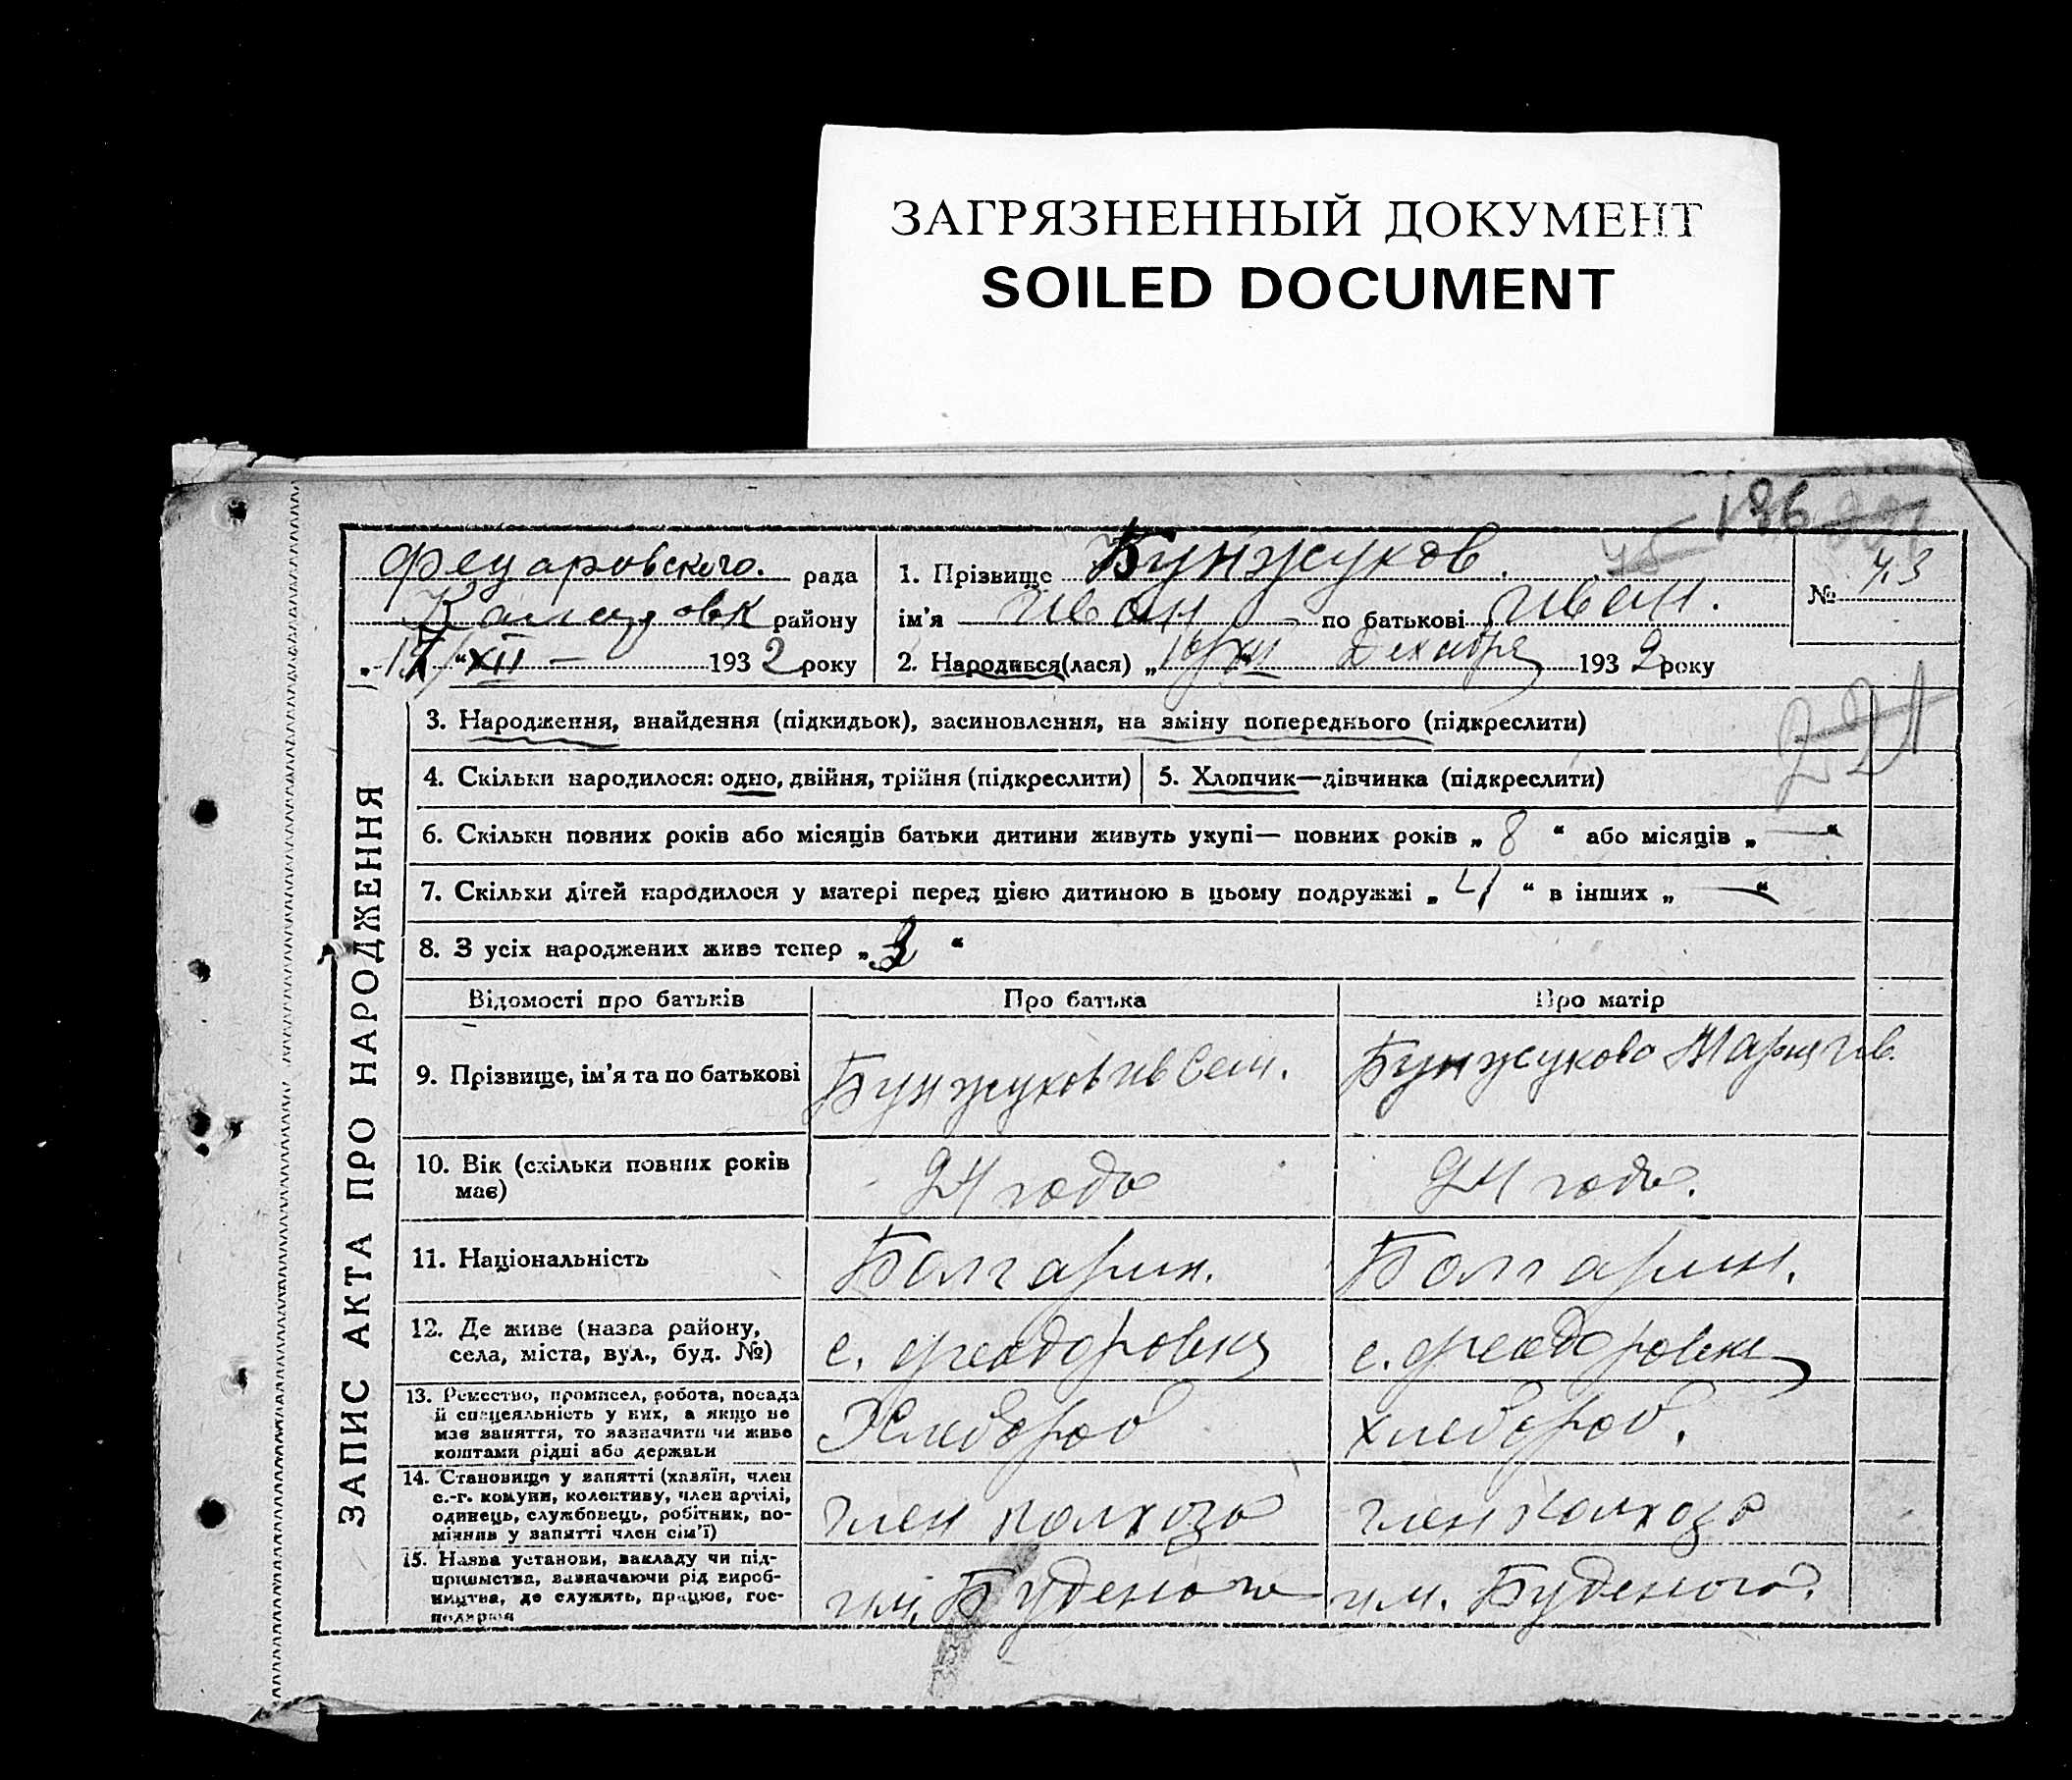 ЗАГРЯЗНЕННЫЙ ДОКУМЕНТ
SOILED DOCUMENT
196
45
ЗАПИС АКТА ПРО НАРОДЖЕННЯ
рада
району
XII — 1932 року
1. Прізвище Бунжуков.
ім'я Иван — по батькові Иван.
2. Народився(лася) „ Декабря 1932 року
№ 43
221
3. Народження, знайдення (підкидьок), засиновлення, на зміну попереднього (підкреслити)
4. Скільки народилося: одно, двійня, трійня (підкреслити)
5. Хлопчик—дівчинка (підкреслити)
6. Скільки повних років або місяців батьки дитини живуть укупі— повних років „ 8 “ або місяців „ — “
7. Скільки дітей народилося у матері перед цією дитиною в цьому подружжі „ 4 “ в інших „ — “
8. З усіх народжених живе тепер „ 3 “
Відомості про батьків Про батька Про матір
9. Прізвище, ім'я та по батькові
Бунжуков Ив Сем.
Бунжукова Мария Ив.
10. Вік (скільки повних років
має)
24 года
24 года.
11. Національність
Болгарин.
Болгарин.
12. Де живе (назва району,
села, міста, вул., буд. №)
с. Феодоровка
с. Феодоровка
13. Ремество, промисел, робота, посада
й спецеяльність у них, а якщо не
має заняття, то зазначити чи живе
коштами рідні або держави
Хлебороб
хлебороб.
14. Становище у занятті (хазяїн, член
с.-г. комуни, колективу, член артілі,
одинець, службовець, робітник, по-
мічник у занятті член сім'ї)
член колхоза
член колхоза
15. Назва установи, закладу чи під-
приємства, зазначаючи рід вироб-
ництва, де служить, працює, гос-
подарює
им. Буденого
им. Буденого.